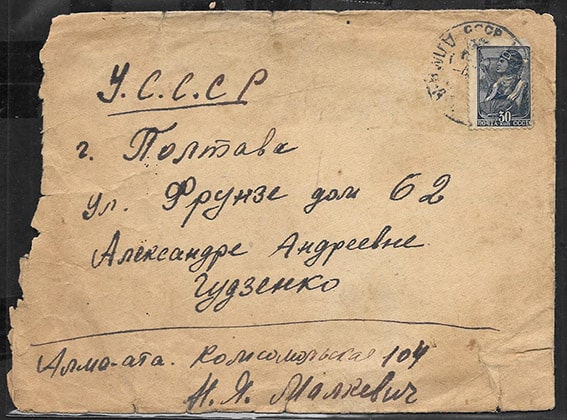 У.С.С.С.Р
г. Полтава
ул. Фрунзе дом 62
Александре Андреевне
Гудзенко
Алма-ата. Комсомольская 104
М. Я. Малкевич
СССР
30
ПОЧТА СССР